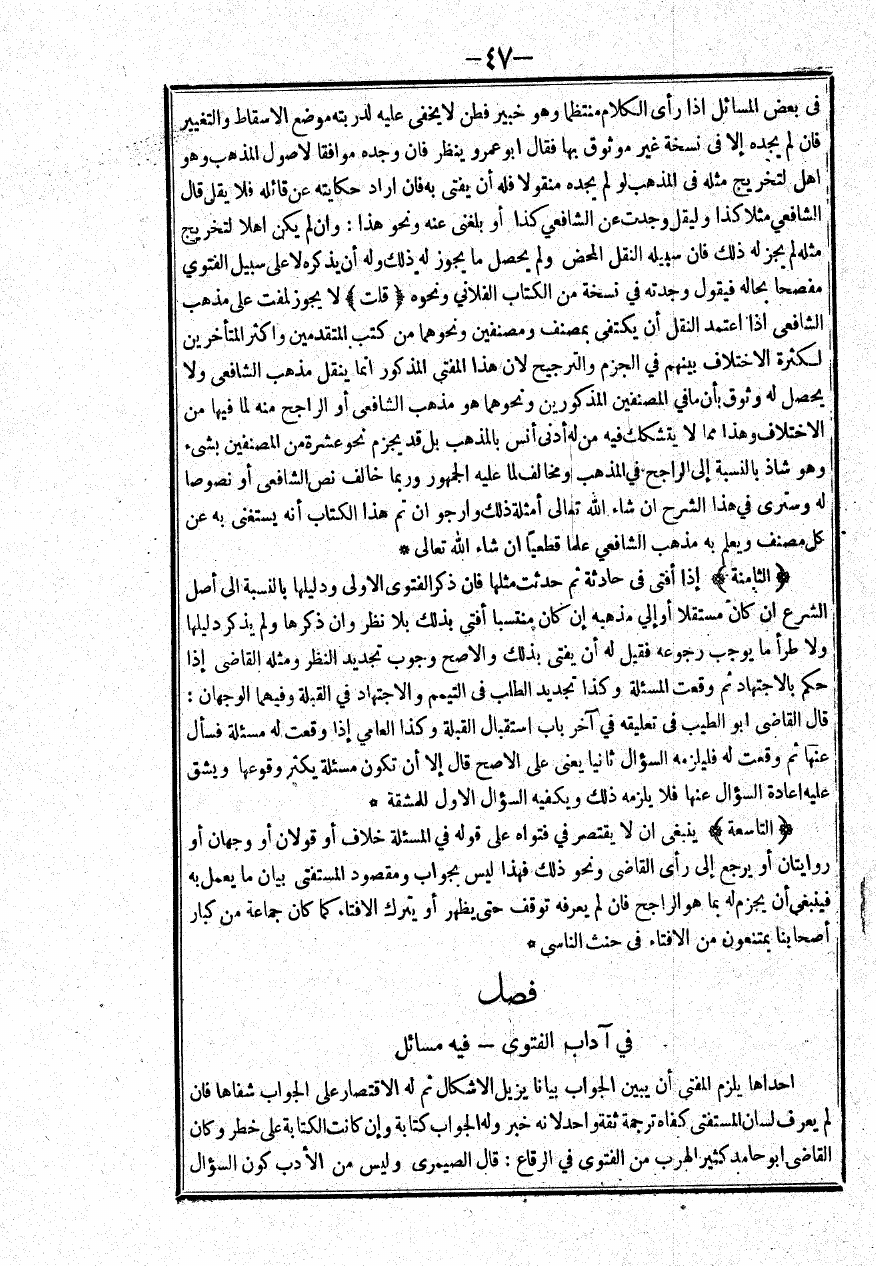 -٤٧-
فى بعض المسائل اذا رأى الكلام منتظما وهو خبير فطن لا يخفى عليه لدربته موضع الاسقاط والتغيير
فان لم يجده إلا فى نسخة غير موثوق بها فقال ابو عمرو ينظر فان وجده موافقا لاصول المذهب وهو
اهل لتخريج مثله فى المذهب لو لم يجده منقولا فله أن يفتى به فان اراد حكايته عن قائله فلا يقل قال
الشافعي مثلا كذا وليقل وجدت عن الشافعي كذا أو بلغنى عنه ونحو هذا : وان لم يكن اهلا لتخريج
مثله لم يجز له ذلك فان سبيله النقل المحض ولم يحصل ما يجوز له ذلك وله أن يذكره لا على سبيل الفتوي
مفصحا بحاله فيقول وجدته في نسخة من الكتاب الفلاني ونحوه ﴿ قلت ﴾ لا يجوز لمفت على مذهب
الشافعى اذا اعتمد النقل أن يكتفى بمصنف ومصنفين ونحوهما من كتب المتقدمين واكثر المتأخرين
لكثرة الاختلاف بينهم في الجزم والترجيح لان هذا المفتى المذكور انما ينقل مذهب الشافعى ولا
يحصل له وثوق بأن مافي المصنفين المذكورين ونحوهما هو مذهب الشافعى أو الراجح منه لما فيها من
الاختلاف وهذا مما لا يتشكك فيه من له أدنى أنس بالمذهب بل قد يجزم نحو عشرة من المصنفين بشىء
وهو شاذ بالنسبة إلى الراجح في المذهب ومخالف لما عليه الجمهور وربما خالف نص الشافعى أو نصوصا
له وسترى في هذا الشرح ان شاء الله تعالى أمثلة ذلك وارجو ان تم هذا الكتاب أنه يستغنى به عن
كل مصنف ويعلم به مذهب الشافعي علما قطعياً ان شاء الله تعالى *
﴿ الثامنة ﴾ إذا أفتى فى حادثة ثم حدثت مثلها فان ذكر الفتوى الاولى ودليلها بالنسبة الى أصل
الشرع ان كان مستقلا أوإلي مذهبه إن كان منتسبا أفتي بذلك بلا نظر وان ذكرها ولم يذكر دليلها
ولا طرأ ما يوجب رجوعه فقيل له أن يفتى بذلك والاصح وجوب تجديد النظر ومثله القاضى إذا
حكم بالاجتهاد ثم وقعت المسئلة وكذا تجديد الطلب فى التيمم والاجتهاد في القبلة وفيهما الوجهان :
قال القاضى ابو الطيب فى تعليقه في آخر باب استقبال القبلة وكذا العامي إذا وقعت له مسئلة فسأل
عنها ثم وقعت له فليلزمه السؤال ثانيا يعنى على الاصح قال إلا أن تكون مسئلة يكثر وقوعها ويشق
عليه اعادة السؤال عنها فلا يلزمه ذلك ويكفيه السؤال الاول للمشقة *
﴿ التاسعة ﴾ ينبغى ان لا يقتصر في فتواه على قوله في المسئلة خلاف أو قولان أو وجهان أو
روايتان أو يرجع إلى رأى القاضى ونحو ذلك فهذا ليس بجواب ومقصود المستفتى بيان ما يعمل به
فينبغى أن يجزم له بما هو الراجح فان لم يعرفه توقف حتى يظهر أو يترك الافتاء كما كان جماعة من كبار
أصحابنا يمتنعون من الافتاء فى حنث الناسى *
فصل
في آداب الفتوى - فيه مسائل
احداها يلزم المفتى أن يبين الجواب بيانا يزيل الاشكال ثم له الاقتصار على الجواب شفاها فان
لم يعرف لسان المستفتى كفاه ترجمة ثقة واحد لانه خبر وله الجواب كتابة وإن كانت الكتابة على خطر وكان
القاضى ابو حامد كثير الهرب من الفتوى في الرقاع : قال الصيمرى وليس من الأدب كون السؤال